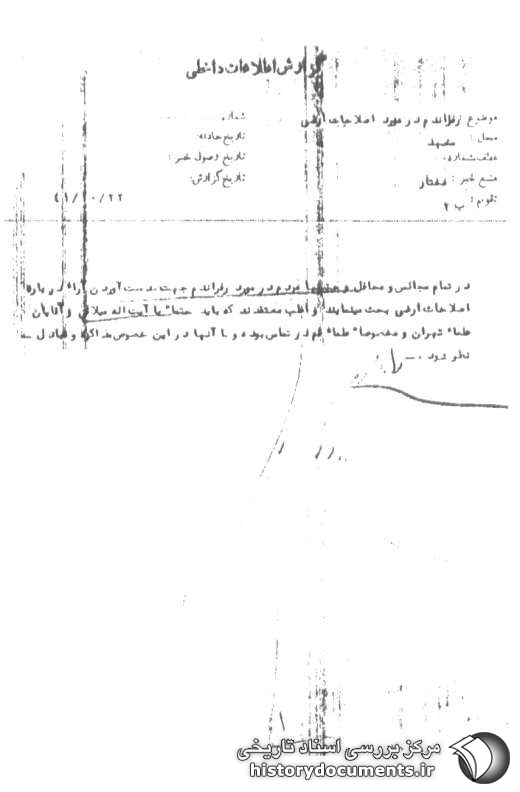 گزارش اطلاعات داخلی
موضوع : رفراندم در مورد اصلاحات ارضی
شماره
محل : مشهد
تاریخ حادثه:
عطف شماره:
تاریخ وصول خبر :
منبع خبر : مختار
تاریخ گزارش:
تقویم : ب ۲
۴۱/۱۰/۲۲
در تمام مجالس و محافل و مردم در مورد رفراندم جهت بدست آوردن آراء در باره
اصلاحات ارضی بحث مینمایند و اغلب معتقدند که باید حتما" با آیت اله میلانی و آقایان
علماء تهران و مخصوصا" علماء قم در تماس بوده و با آنها در این خصوص مذاکره و تبادل
نظر شود .
مرکز بررسی اسناد تاریخی
historydocuments.ir